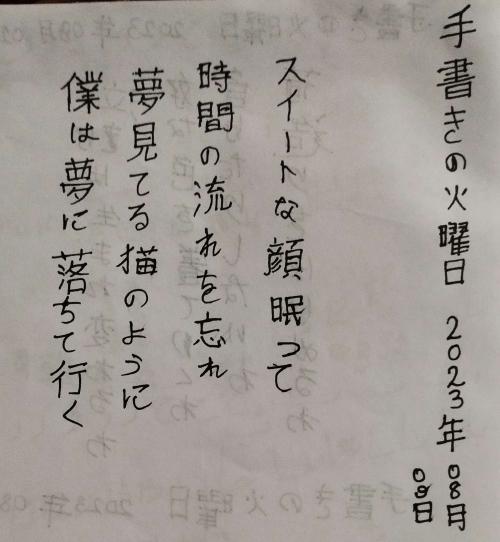 手書きの火曜日 2023年 08月
08日
スイートな顔眠って
時間の流れを忘れ
夢見てる描のように
僕は夢に落ちて行く